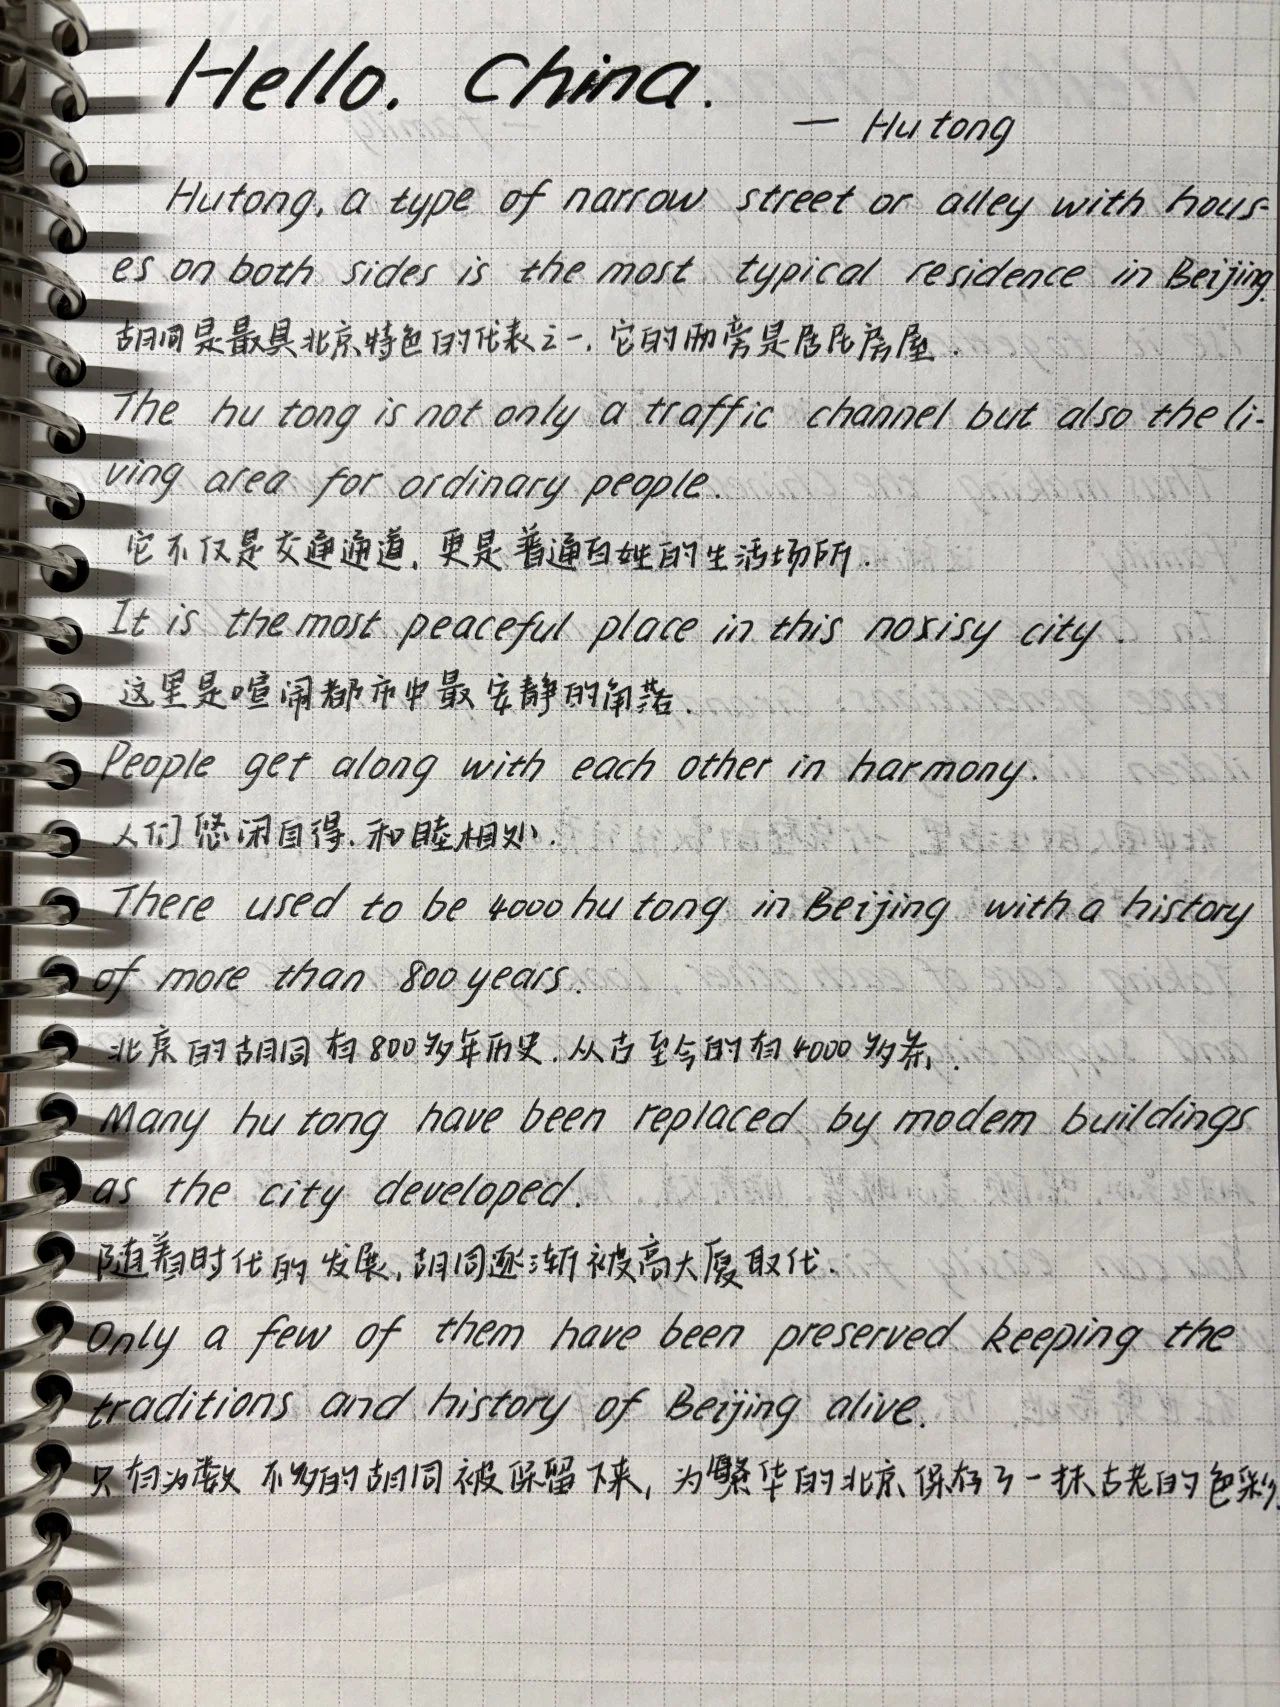 Hello. China.
— Hu tong
Hutong, a type of narrow street or alley with hous-
es on both sides is the most typical residence in Beijing.
胡同是最具北京特色的代表之一. 它的两旁是居民房屋.
The hu tong is not only a traffic channel but also the li-
ving area for ordinary people.
它不仅是交通通道, 更是普通百姓的生活场所.
It is the most peaceful place in this noxisy city.
这里是喧闹都市中最安静的角落.
People get along with each other in harmony.
人们悠闲自得. 和睦相处.
There used to be 4000 hu tong in Beijing with a history
of more than 800 years.
北京的胡同有800多年历史. 从古至今的有4000多条.
Many hu tong have been replaced by modem buildings
as the city developed.
随着时代的发展, 胡同逐渐被高大厦取代.
Only a few of them have been preserved keeping the
traditions and history of Beijing alive.
只有为数不多的胡同被保留下来, 为繁华的北京保存了一抹古老的色彩.